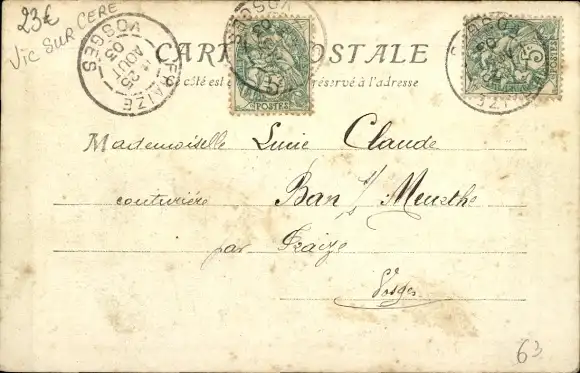 23€
VIC SUR CERE
FRAIZE
25
AOUT
03
VOSGES
CARTE POSTALE
réservé à l'adresse
POSTES
5
Mademoiselle Lucie Claude
couturière Ban s/ Meurthe
par Fraize
Vosges
63